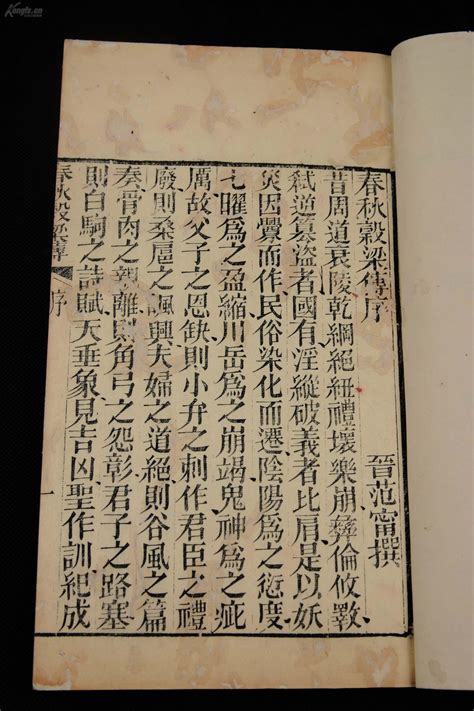 Kongfz.cn
春秋穀梁傳序
晉范甯撰
昔周道衰陵乾綱絕紐禮壞樂崩彝倫攸斁
弒逆篡盜者國有淫縱破義者比肩是以妖
災因釁而作民俗染化而遷陰陽爲之愆度
七曜爲之盈縮川岳爲之崩竭鬼神爲之疵
厲故父子之恩缺則小弁之刺作君臣之禮
廢則桑扈之諷興夫婦之道絕則谷風之篇
奏骨肉之親離則角弓之怨彰君子之路塞
則白駒之詩賦天垂象見吉凶聖作訓紀成
春秋穀梁傳 序 一